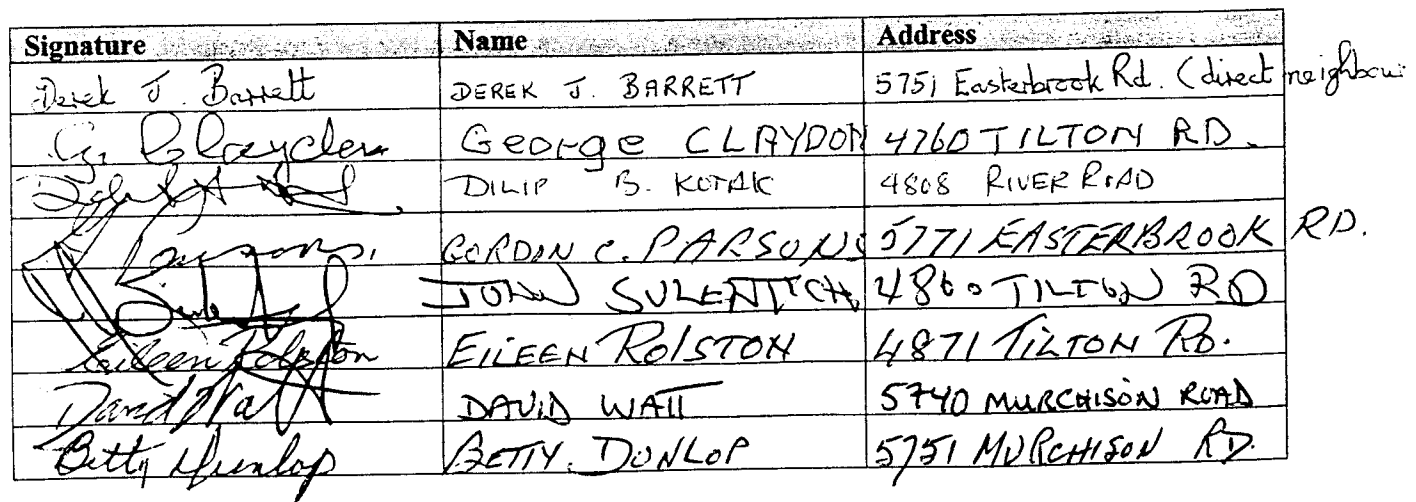 Signature Name Address
Derek J. Barrett DEREK J. BARRETT 5751 Easterbrook Rd. (direct neighbour
G. Claydon George CLAYDON 4760 TILTON RD.
DILIP B. KOTAK 4808 RIVER ROAD
Parsons. GORDON C. PARSONS 5771 EASTERBROOK RD.
JOHN SULENTICH 4860 TILTON RD
Eileen Rolston EILEEN ROLSTON 4871 TILTON RD.
David Watt DAVID WATT 5740 MURCHISON ROAD
Betty Dunlop BETTY DUNLOP 5751 MURCHISON RD.